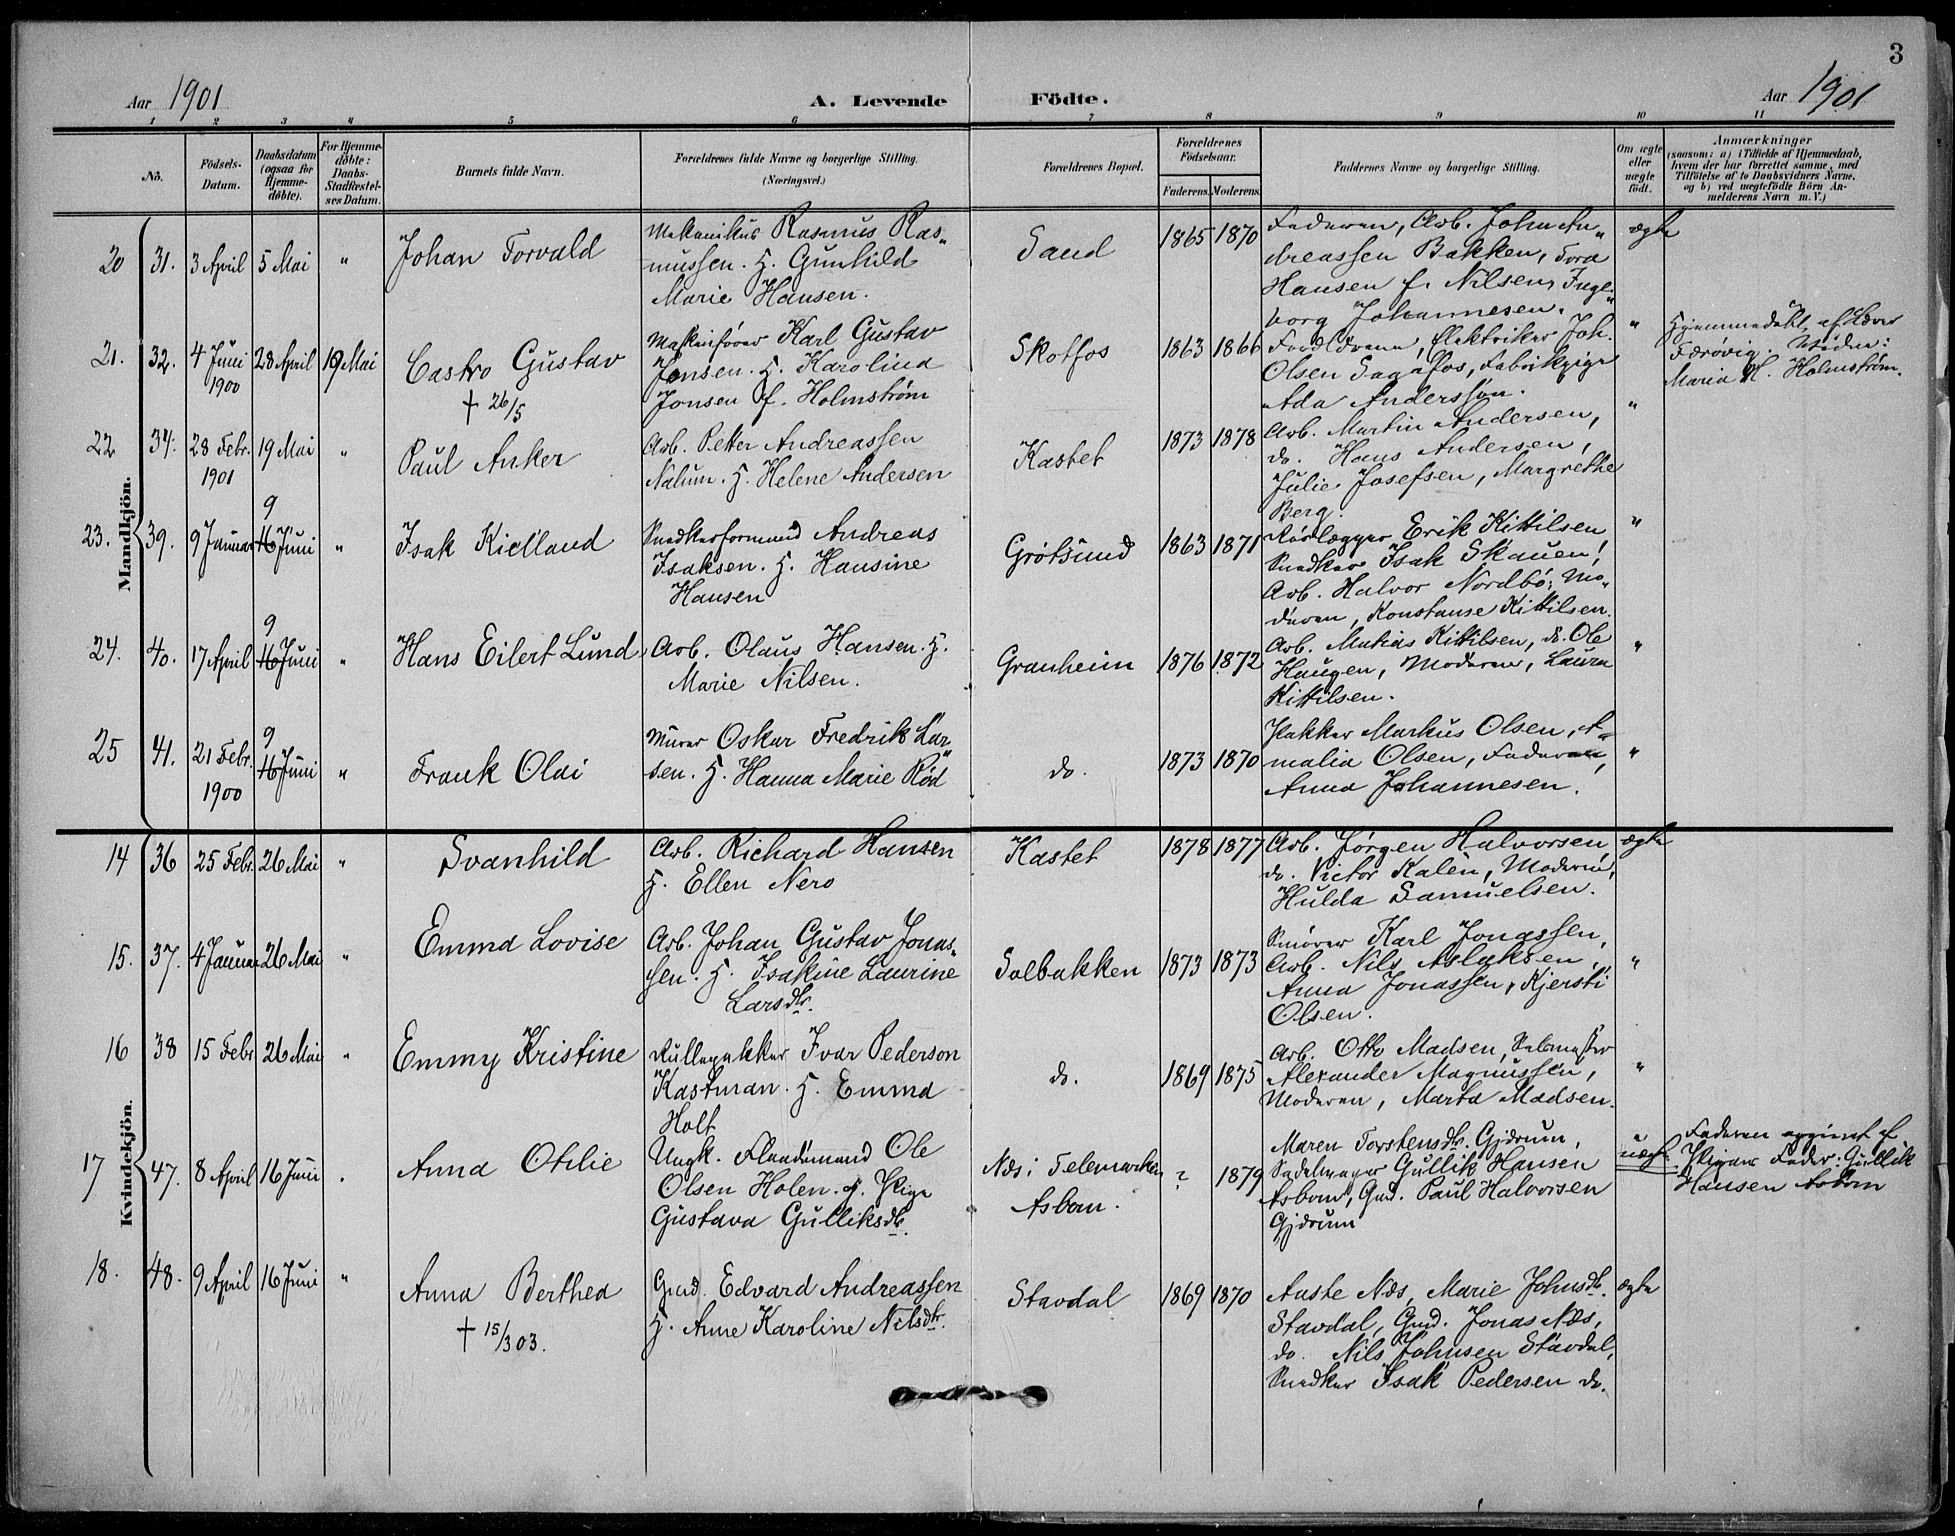 3
Aar 1901
A. Levende
Födte.
Aar 1901
1 2 3 4 5 6 7 8 9 10 11
No.
Födsels-
Datum.
Daabsdatum
(ogsaa for
Hjemme-
døbte).
For Hjemme-
døbte:
Daabs-
Stadfæstel-
ses Datum.
Barnets fulde Navn.
Forældrenes fulde Navne og borgerlige Stilling.
(Næringsvei.)
Forældrenes Bopæl.
Forældrenes
Fødselsaar.
Faderens. Moderens.
Faddernes Navne og borgerlige Stilling.
Om ægte
eller
uægte
født.
Anmærkninger
(saasom: a) i Tilfælde af Hjemmedaab,
hvem der har forrettet samme, med
Tilföielse af to Daabsvidners Navne,
og b) ved uægtefødte Börn An-
melderens Navn m. V.)
Mandkjön.
20 31. 3 April 5 Mai " Johan Torvald
Mekanikus Rasmus Ras-
mussen. H. Gunhild
Marie Hansen.
Sand 1865 1870
Faderen, Arb. John An-
dreassen Bakken, Tora
Hansen f. Nilsen, Inge-
borg Johannesen.
ægte
21. 32. 4 Juni 28 April 19 Mai Castro Gustav
1900
† 26/5
Maskinfører Karl Gustav
Jonsen. H. Karolina
Jonsen f. Holmstrøm
Skotfos 1863 1866
Forældrene, Elektriker Joh.
Olsen Sagafos, Fabrikpige
Ada Andersson.
"
Hjemmedøbt af Lærer
Færøvig. Vidne:
Maria K. Holmstrøm.
22 34. 28 Febr. 19 Mai " Paul Anker
1901
Arb. Petter Andreassen
Nalum. H. Helene Andersen
Kastet 1873 1878
Arb. Martin Andersen,
do. Hans Andersen,
Julie Josefsen, Margrethe
Berg.
"
23. 39. 9 Januar 9 16 Juni " Isak Kielland
Snedkerformand Andreas
Isaksen. H. Hansine
Hansen
Grøtsund 1863 1871
Rørlægger Erik Kittilsen,
Snedker Isak Skauen,
Arb. Halvor Nordbø, Mo-
deren, Konstanse Kittilsen.
"
24. 40. 17 April 9 16 Juni " Hans Eilert Lund
Arb. Olaus Hansen. H.
Marie Nilsen.
Granheim 1876 1872
Arb. Matias Kittilsen, do. Ole
Haugen, Moderen, Laura
Kittilsen.
"
25 41. 21 Febr. 9 16 Juni " Frank Olai
1900
Murer Oskar Fredrik Lar-
sen. H. Hanna Marie Rød
do. 1873 1870
Pakker Markus Olsen, A-
malia Olsen, Faderen,
Anna Johannesen.
"
Kvindekjön.
14 36 25 Febr. 26 Mai " Svanhild
Arb. Richard Hansen
H. Ellen Nero
Kastet 1878 1877
Arb. Jørgen Halvorsen
do. Victor Kalèn, Moderen,
Hulda Samuelsen.
ægte
15. 37. 4 Januar 26 Mai " Emma Lovise
Arb. Johan Gustav Jonas-
sen. H. Isakine Laurine
Larsdtr.
Solbakken 1873 1873
Smører Karl Jonassen,
Arb. Nils Aslaksen,
Anna Jonassen, Kjersti
Olsen.
"
16 38 15 Febr 26 Mai " Emmy Kristine
Rullepakker Ivar Pederson
Kastman. H. Emma
Holt
do. 1869 1875
Arb. Otto Madsen,
Alexander Magnussen,
Moderen, Marta Madsen.
"
17 47. 8 April 16 Juni " Anna Otilie
Ungk. Flaadmand Ole
Olsen Holen. og Pige
Gustava Gulliksdtr.
Næs i Telemarken
Asbom.
? 1879
Maren Torstensdtr. Gjærum,
Sadelmager Gullik Hansen
Asbom, Gmd. Paul Halvorsen
Gjærum
uægte
Faderen opgivet af
Pigens Fader: Gullik
Hansen Asbom
18. 48. 9 April 16 Juni " Anna Berthea
† 15/3 03.
Gmd. Edvard Andreassen
H. Anne Karoline Nilsdtr.
Stavdal 1869 1870
Auste Næs, Marie Johnsdtr.
Stavdal, Gmd. Jonas Næs,
do. Nils Johnsen Stavdal,
Snedker Isak Pedersen do.
ægte